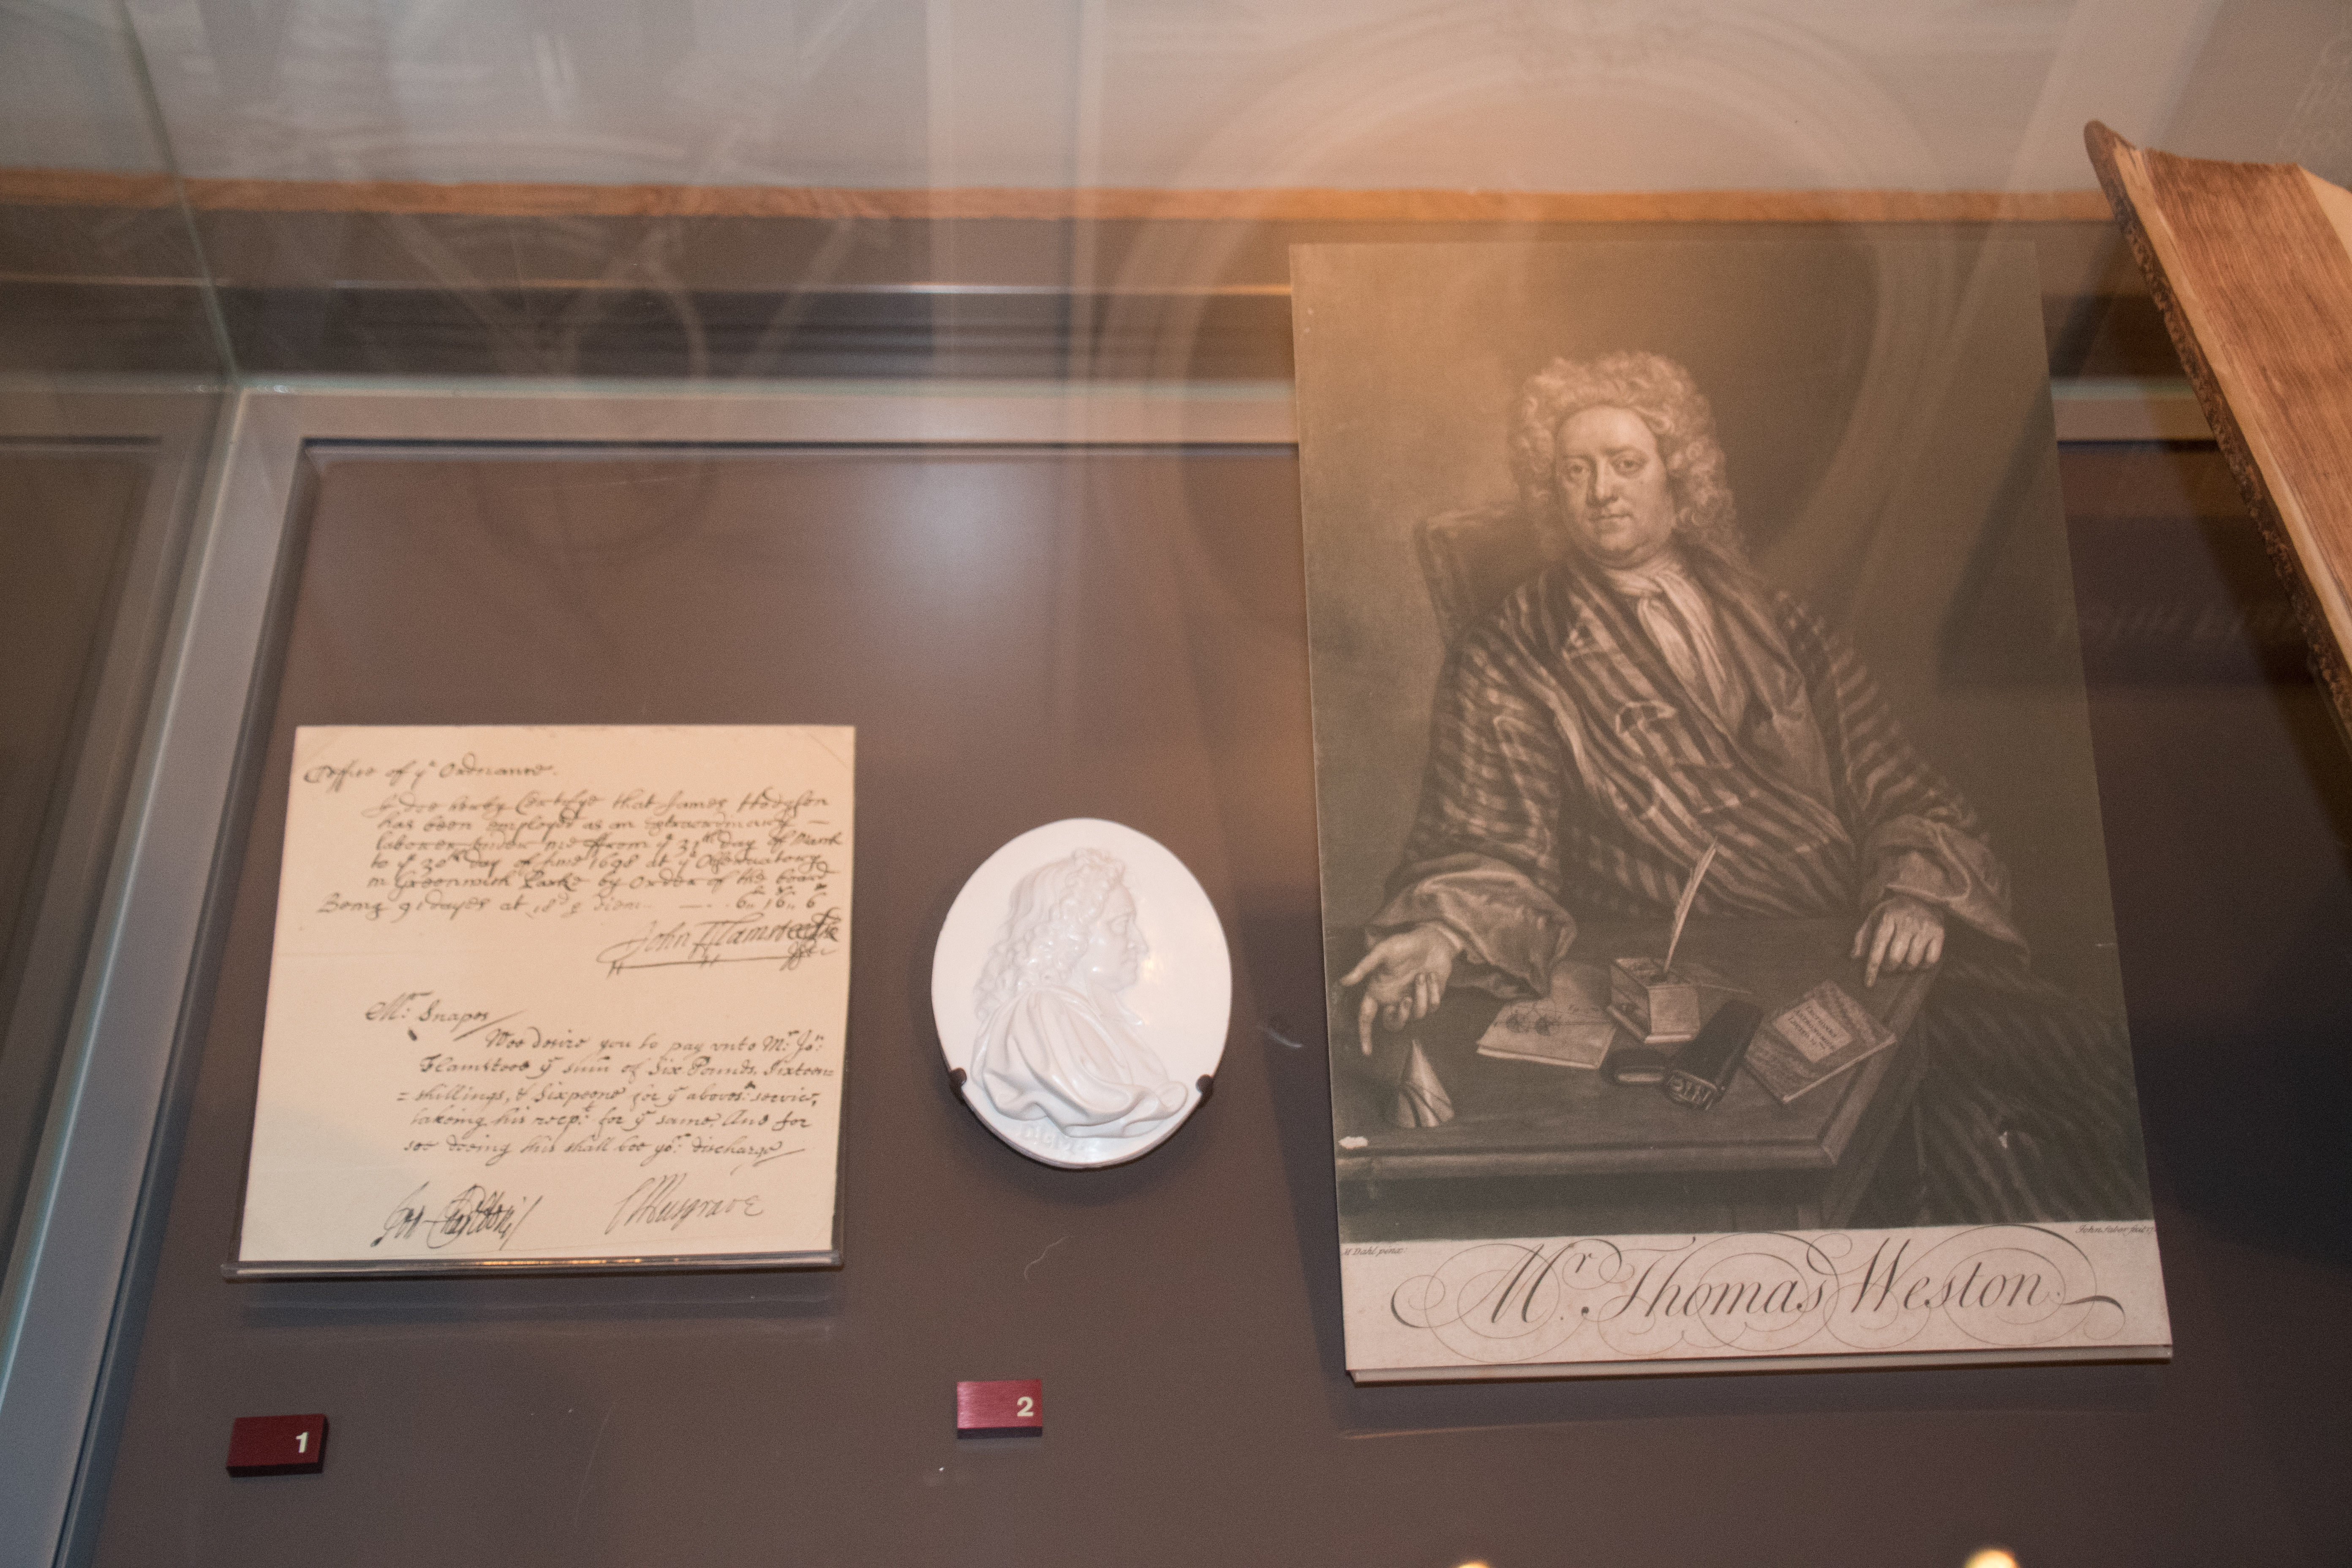 Office of yᵉ Ordnance.
I doe hereby Certifye that James Hodgson
has been employed as an extraordinary
laborer under me ffrom yᵉ 31ᵗʰ day of March
to yᵉ 30ᵗʰ day of June 1698 at yᵉ Observatory
in Greenwich Parke by Order of the board
Being 91 dayes at 18ᵈ ꝑ Diem 6 16 6
John Flamsteed
Mʳ: Snapes
Wee desire you to pay vnto Mʳ: Joⁿ:
Flamsteed yᵉ sum of Six Pounds, Sixteen
=shillings, & Sixpence for yᵉ aboveˢ: service,
takeing his recpᵗ: for yᵉ same, And for
soe doeing this shall bee yoʳ: discharge
CMusgrave
1
2
M Dahl pinx.
John Faber fecit
Mʳ. Thomas Weston.